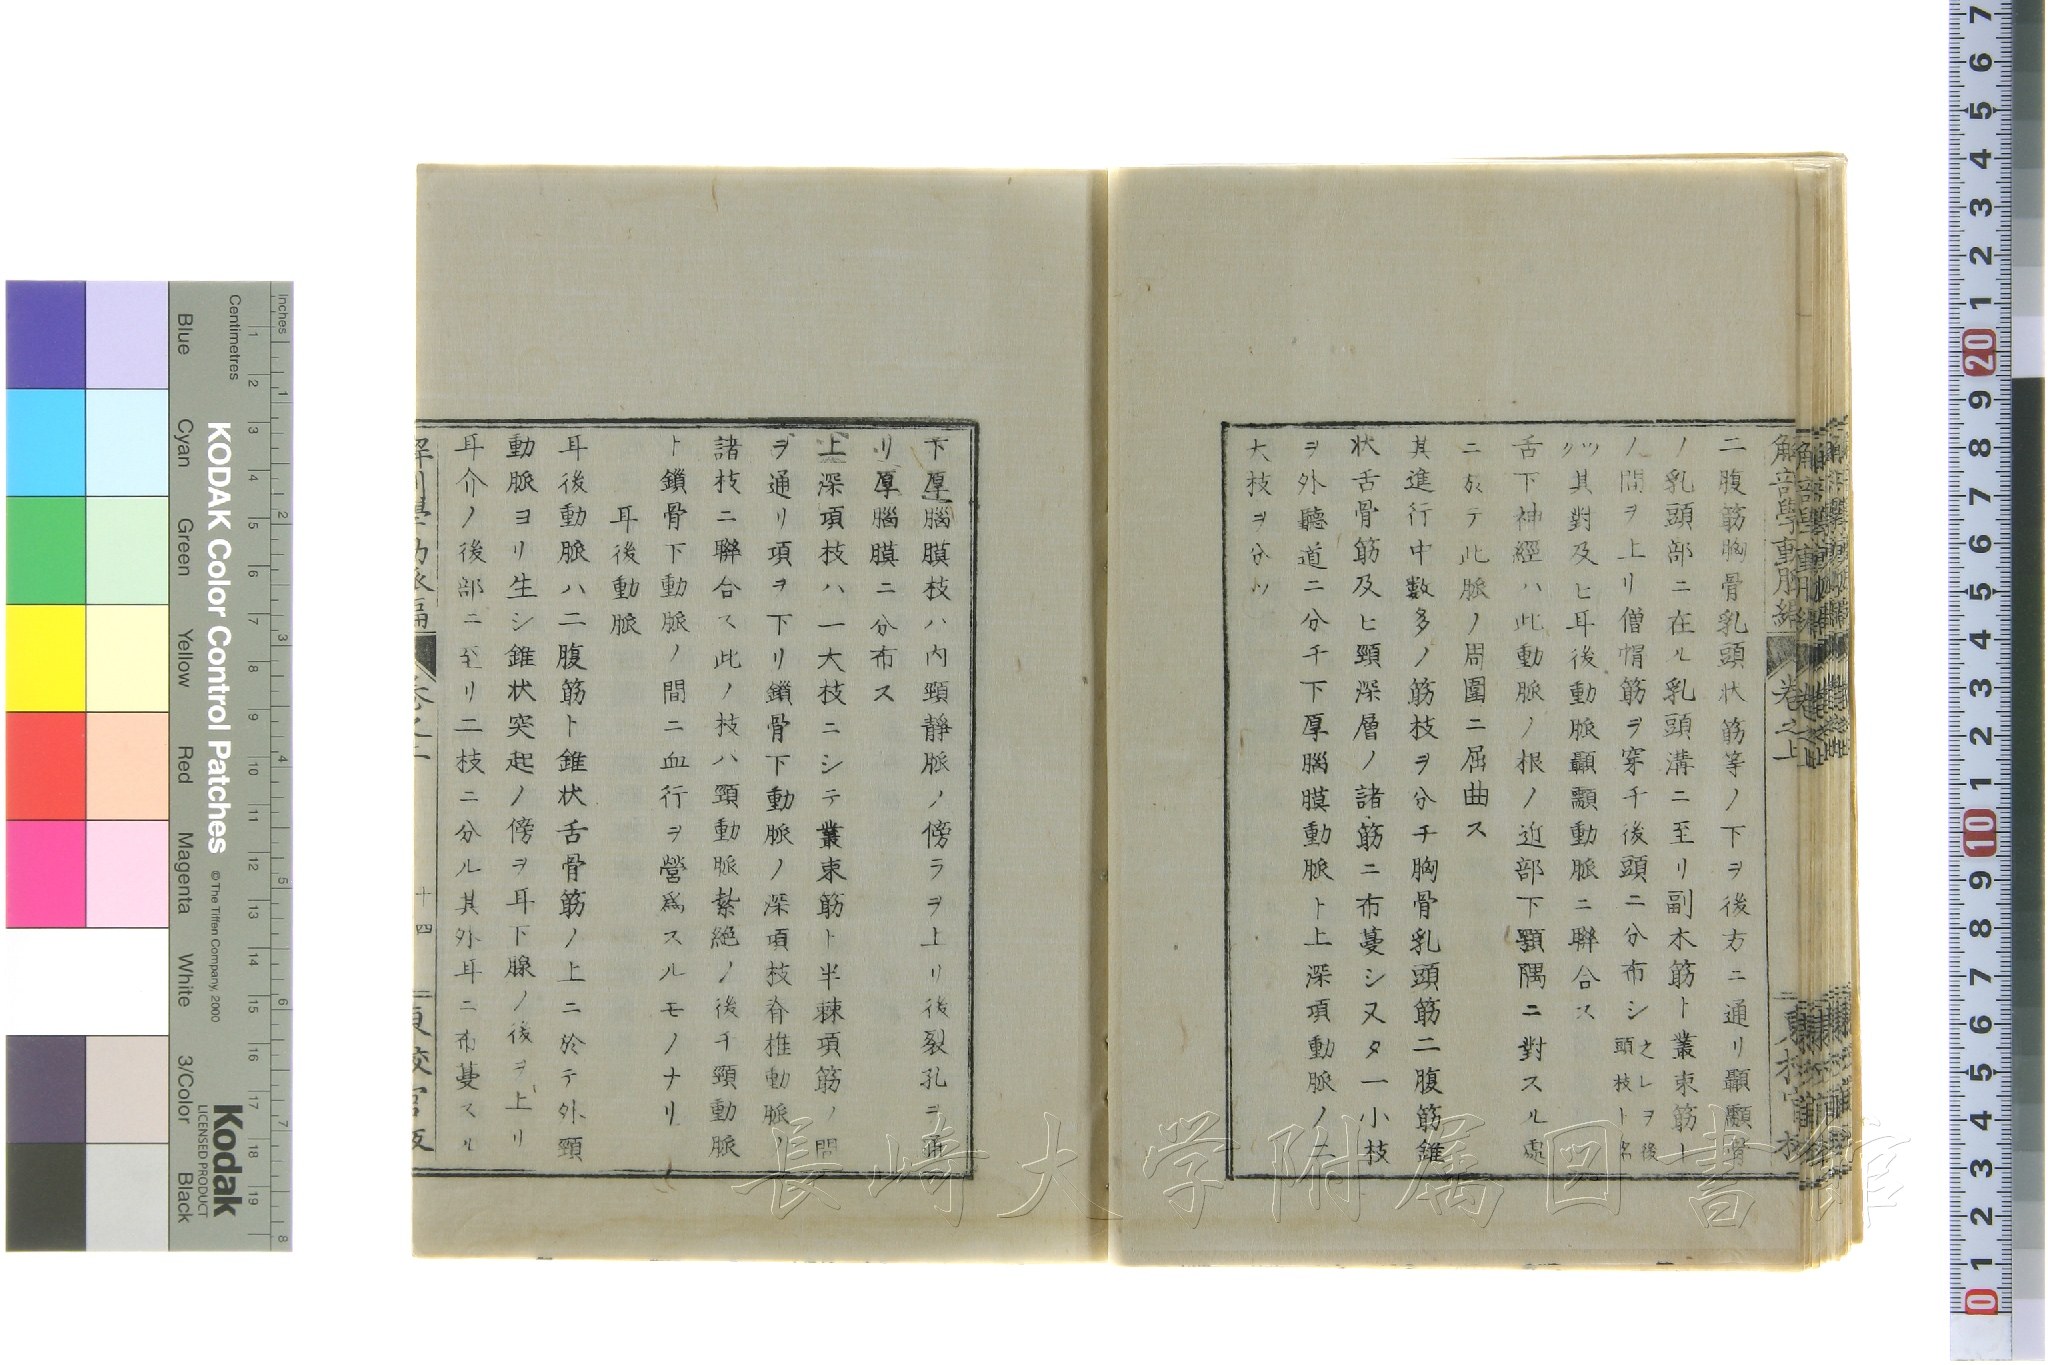 二腹筋胸骨乳頭状筋等ノ下ヲ後方ニ通リ顳顬骨
ノ乳頭部ニ在ル乳頭溝ニ至リ副木筋ト叢束筋ト
ノ間ヲ上リ僧帽筋ヲ穿チ後頭ニ分布シ之レヲ後頭枝ト名
ツク其對及ヒ耳後動脈顳顬動脈ニ聯合ス
舌下神經ハ此動脈ノ根ノ近部下顎隅ニ對スル處
ニ於テ此脈ノ周圍ニ屈曲ス
其進行中數多ノ筋枝ヲ分チ胸骨乳頭筋二腹筋錐
状舌骨筋及ヒ頸深層ノ諸筋ニ布蔓シ又タ一小枝
ヲ外聽道ニ分チ下厚腦膜動脈ト上深項動脈ノ二
大枝ヲ分ツ
下厚腦膜枝ハ内頸靜脈ノ傍ラヲ上リ後裂孔ヲ通
リ厚腦膜ニ分布ス
上深項枝ハ一大枝ニシテ叢束筋ト半棘項筋ノ間
ヲ通リ項ヲ下リ鎖骨下動脈ノ深項枝脊椎動脈ノ
諸枝ニ聯合ス此ノ枝ハ頸動脈紮絶ノ後チ頸動脈
ト鎖骨下動脈ノ間ニ血行ヲ營爲スルモノナリ
耳後動脈
耳後動脈ハ二腹筋ト錐状舌骨筋ノ上ニ於テ外頸
動脈ヨリ生シ錐状突起ノ傍ヲ耳下腺ノ後ヲ上リ
耳介ノ後部ニ至リ二枝ニ分ル其外耳ニ布蔓スル
十四
解剖學動脈編 卷之上
長崎大学附属図書館
KODAK Color Control Patches
© The Tiffen Company, 2000
Kodak
LICENSED PRODUCT
Inches
Centimetres
Blue
Cyan
Green
Yellow
Red
Magenta
White
3/Color
Black